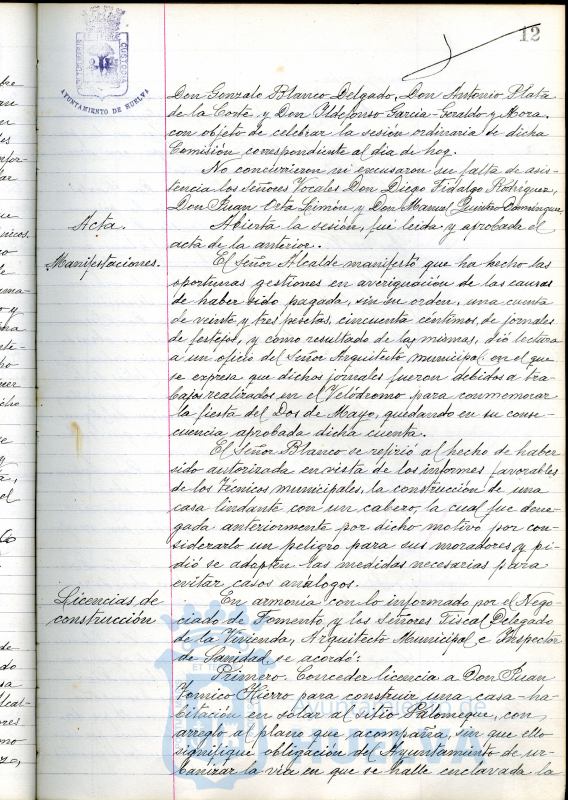 12
AYUNTAMIENTO DE HUELVA
Don Gonzalo Blanco Delgado, Don Antonio Plata
de la Corte y Don Ildefonso Garcia-Geraldo y Mora,
con objeto de celebrar la sesión ordinaria de dicha
Comisión correspondiente al dia de hoy.
No concurrieron ni excusaron su falta de asis-
tencia los Señores Vocales Don Diego Fidalgo Rodriguez,
Don Juan Orta Limón y Don Manuel Quintero Dominguez.
Acta.
Abierta la sesión, fue leida y aprobada el
acta de la anterior.
Manifestaciones.
El Señor Alcalde manifestó que ha hecho las
oportunas gestiones en averiguación de las causas
de haber sido pagada, sin su orden, una cuenta
de veinte y tres pesetas, cincuenta centimos, de jornales
de festejos, y como resultado de las mismas, dió lectura
a un oficio del Señor Arquitecto municipal en el que
se expresa que dichos jornales fueron debidos a tra-
bajos realizados en el Velódromo para conmemorar
la fiesta del Dos de Mayo, quedando en su conse-
cuencia aprobada dicha cuenta.
El Señor Blanco se refirió al hecho de haber
sido autorizada en vista de los informes favorables
de los Técnicos municipales, la construcción de una
casa lindante con un cabezo, la cual fue dene-
gada anteriormente por dicho motivo por con-
siderarlo un peligro para sus moradores, y pi-
dió se adopten las medidas necesarias para
evitar casos análogos.
Licencias de
construcción
En armonia con lo informado por el Nego-
ciado de Fomento, y los Señores Fiscal Delegado
de la Vivienda, Arquitecto Municipal e Inspector
de Sanidad se acordó:
Primero. Conceder licencia a Don Juan
Hierro para construir una casa-ha-
bitación en solar al sitio Palomeque, con
arreglo al plano que acompaña, sin que ello
signifique obligación del Ayuntamiento de ur-
banizar la via en que se halle enclavada la